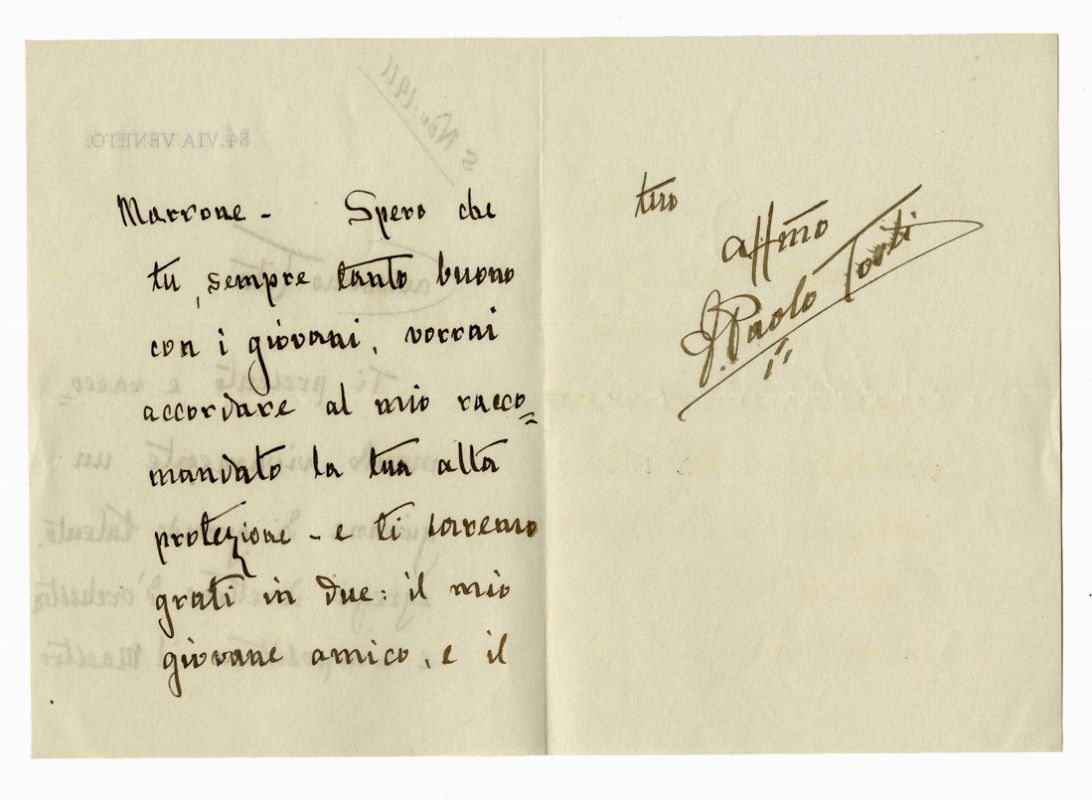 Marrone - Spero che
tu, sempre tanto buono
con i giovani, vorrai
accordare al mio racco=
mandato la tua alta
protezione - e ti saremo
grati in due: il mio
giovane amico, e il
tuo
affmo
Paolo Tosti
84. VIA VENETO.
5 Nov: 1911
Ti
e racco=
un
talento.
d'orchestra
e
il Maestro